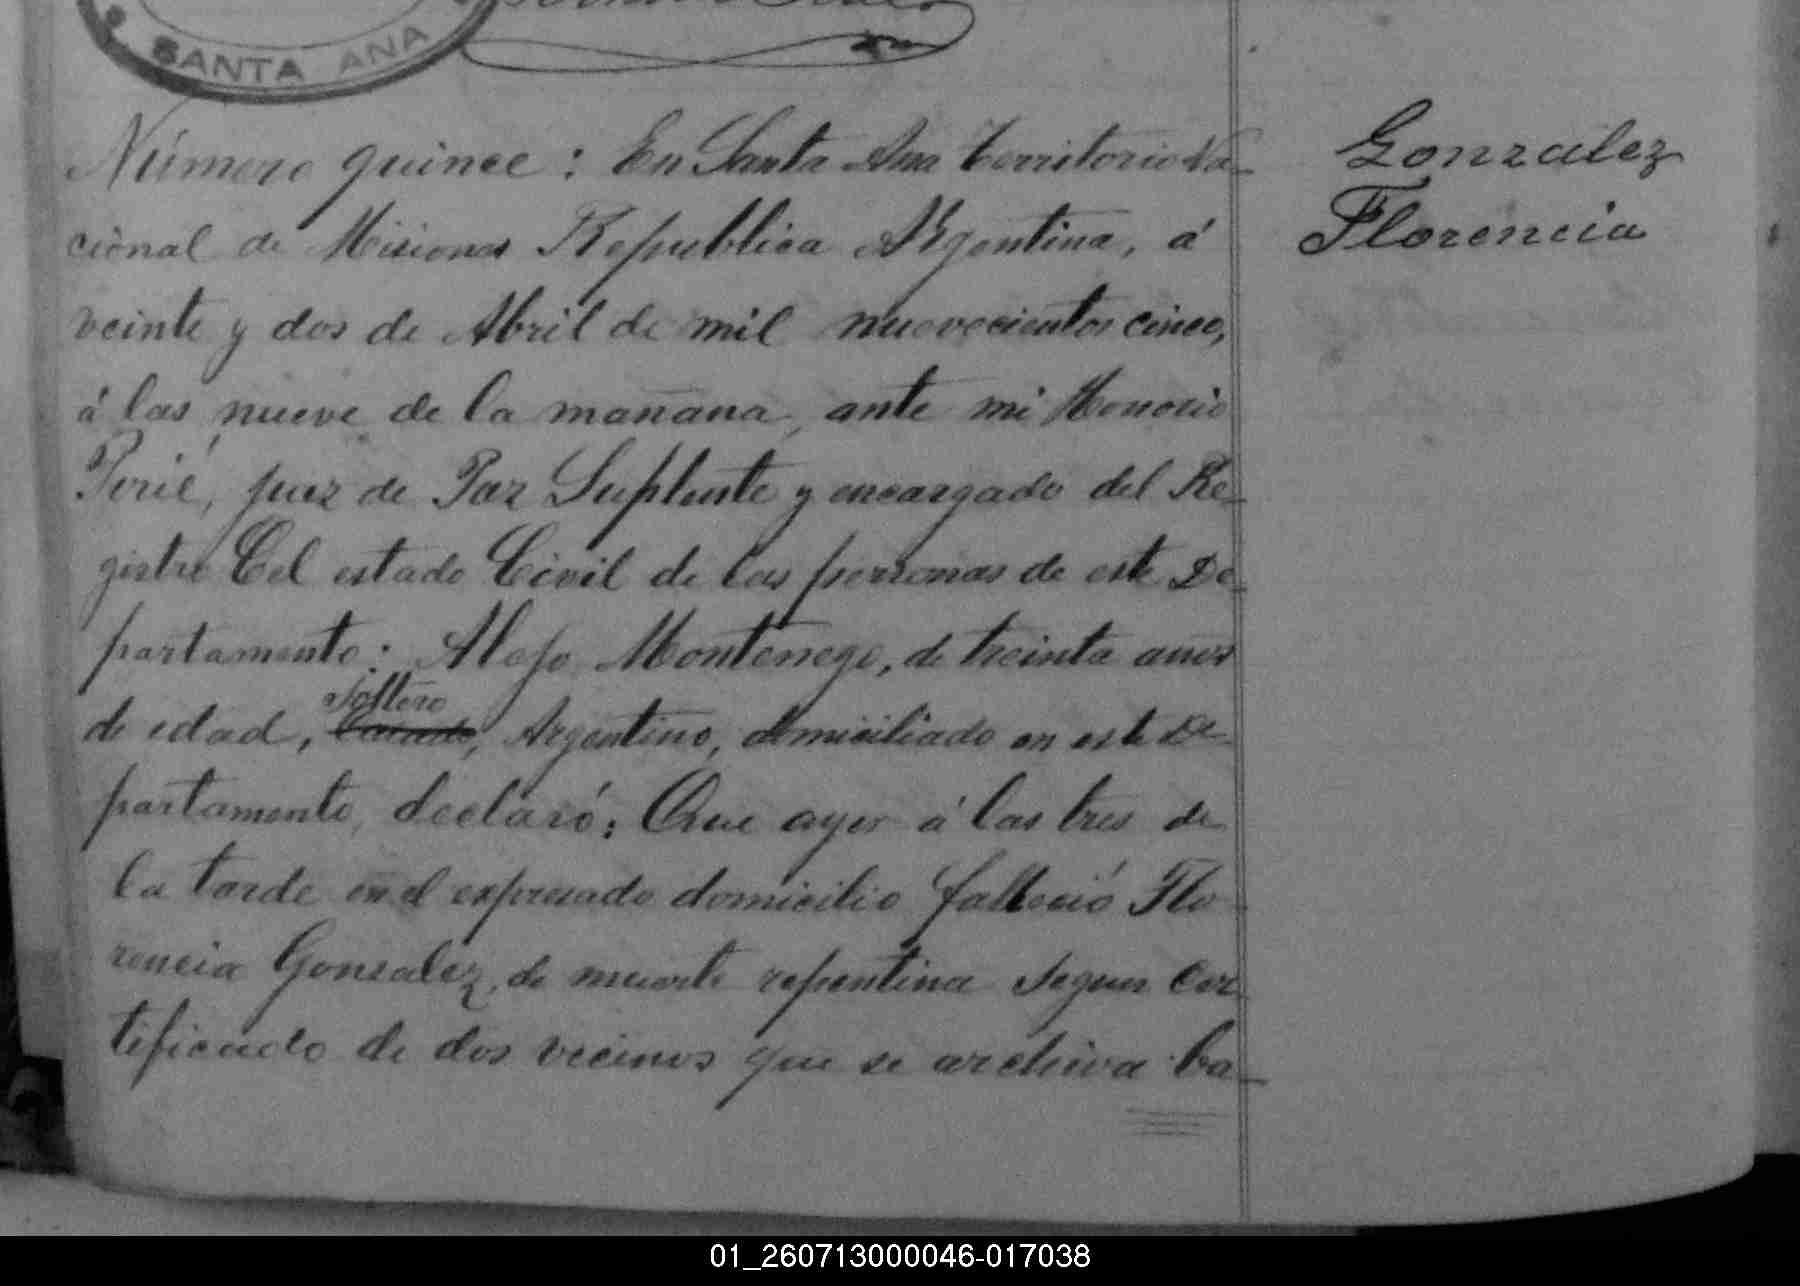 SANTA ANA
Número quince: En Santa Ana territorio Na-
cional de Misiones Republica Argentina, á
veinte y dos de Abril de mil nuevecientos cinco,
á las nueve de la mañana, ante mi Honorio
Perié, juez de Paz Suplente y encargado del Re-
gistro Cel estado Civil de las personas de este De-
partamento: Alejo Montenego, de treinta años
Soltero
de edad, Casado, Argentino, domiciliado en este De-
partamento, declaró: Que ayer á las tres de
la tarde en el expresado domicilio falleció Flo-
rencia Gonzalez, de muerte repentina segun Cer-
tificado de dos vecinos que se archiva ba-
Gonzalez
Florencia
01_260713000046-017038